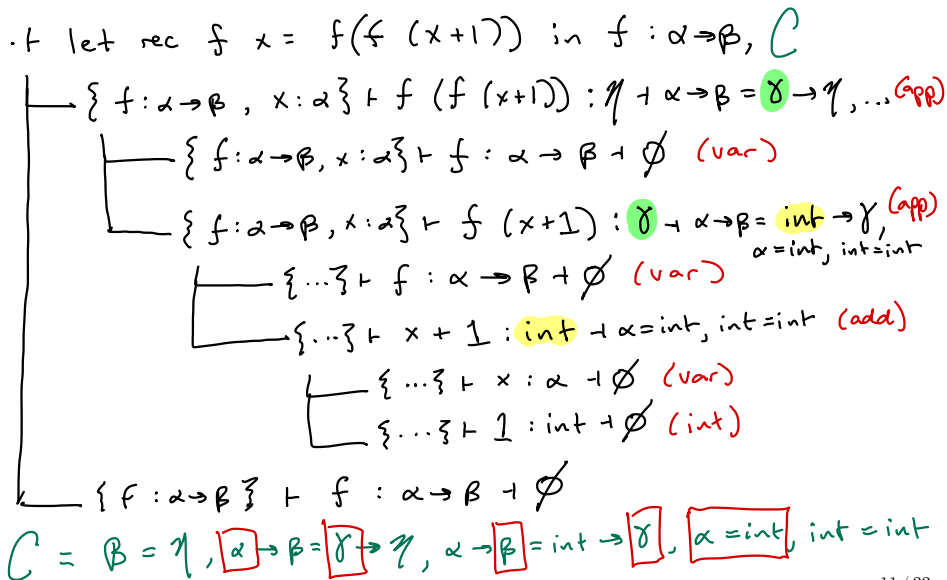 · ⊢ let rec f x = f(f (x+1)) in f : α→β, C
{ f : α→β, x : α} ⊢ f (f (x+1)) : η ⊣ α→β = γ→η, ... (app)
{ f : α→β, x : α} ⊢ f : α → β ⊣ ∅ (var)
{ f : α→β, x : α} ⊢ f (x+1) : γ ⊣ α→β = int → γ, (app)
α = int, int = int
{...} ⊢ f : α → β ⊣ ∅ (var)
{...} ⊢ x + 1 : int ⊣ α = int, int = int (add)
{...} ⊢ x : α ⊣ ∅ (var)
{...} ⊢ 1 : int ⊣ ∅ (int)
{ f : α→β } ⊢ f : α → β ⊣ ∅
C = β = η, α → β = γ → η, α → β = int → γ, α = int, int = int